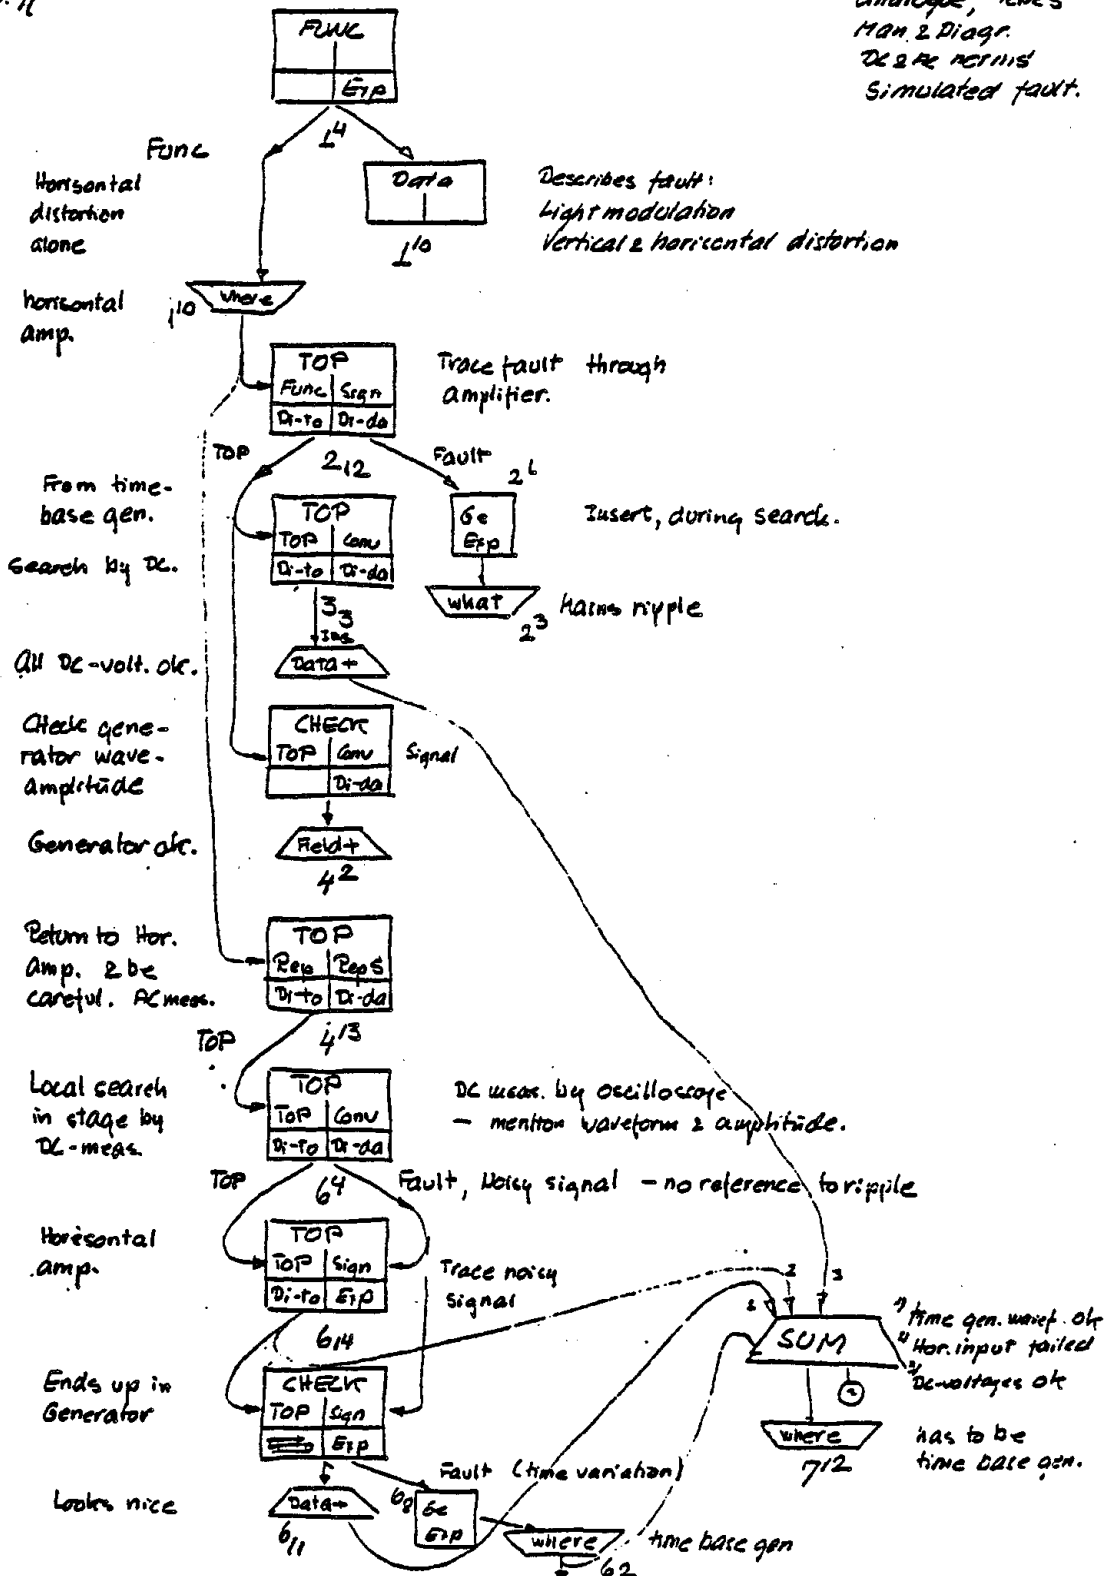 Man. & Diagr.
Simulated fault.
FUNC
Exp
1 4
Func
Horisontal
distortion
alone
Data
1 10
Describes fault:
Light modulation
Vertical & horisontal distortion
horisontal
amp.
1 10
where
TOP
Func Sign
Di-to Di-da
Trace fault through
amplifier.
TOP
2 12
Fault
2 6
From time-
base gen.
Search by DC.
TOP
TOP Conv
Di-to Di-da
Ge
Exp
Insert, during search.
what
2 3
Mains ripple
3 3
All DC-volt. ok.
Data+
Check gene-
rator wave-
amplitude
CHECK
TOP Conv
Di-da
Signal
Generator ok.
Field+
4 2
Return to Hor.
amp. & be
careful. AC meas.
TOP
Rep Rep S
Di-to Di-da
TOP
4 13
Local search
in stage by
DC-meas.
TOP
TOP Conv
Di-to Di-da
DC meas. by oscilloscope
- mention waveform & amplitude.
TOP
6 4
Fault, Noisy signal - no reference to ripple
Horisontal
amp.
TOP
TOP Sign
Di-to Exp
Trace noisy
signal
6 14
2
3
SUM
time gen. wavef. ok
Hor. input failed
DC-voltages ok
Ends up in
Generator
CHECK
TOP Sign
Exp
where
7 12
has to be
time base gen.
Looks nice
Data+
6 11
Fault (time variation)
6 8
Ge
Exp
where
6 2
time base gen